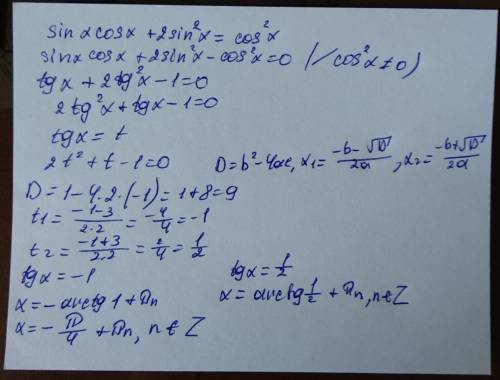 sinx cosx + 2sin²x = cos²x
sinx cosx + 2sin²x - cos²x = 0 (/cos²x ≠ 0)
tgx + 2tg²x - 1 = 0
2tg²x + tgx - 1 = 0
tgx = t
2t² + t - 1 = 0 D = b² - 4ac, x₁ = (-b - √D)/2a, x₂ = (-b + √D)/2a
D = 1 - 4·2·(-1) = 1 + 8 = 9
t₁ = (-1-3)/(2·2) = -4/4 = -1
t₂ = (-1+3)/(2·2) = 2/4 = 1/2
tgx = -1 tgx = 1/2
x = -arctg1 + πn x = arctg 1/2 + πn, n ∈ Z
x = -π/4 + πn, n ∈ Z